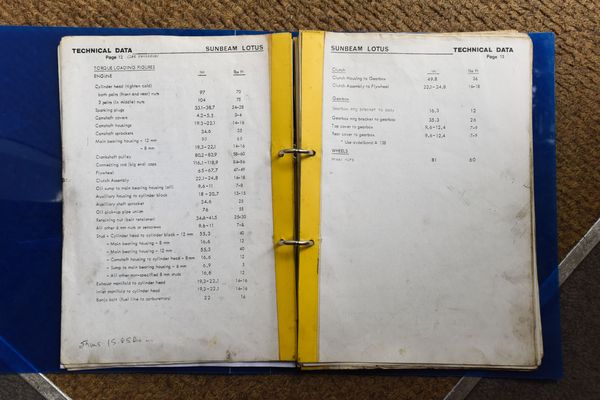 TECHNICAL DATA SUNBEAM LOTUS
Page 12
TORQUE LOADING FIGURES
ENGINE Nm lbs ft
Cylinder head (tighten cold)
both pairs (front and rear) nuts 97 70
3 pairs (in middle) nuts 104 75
Sparking plugs 33,1-38,7 24-28
Camshaft covers 4,2-5,5 3-4
Camshaft housings 19,3-22,1 14-16
Camshaft sprockets 34,6 25
Main bearing housing - 12 mm
- 8 mm 19,3-22,1 14-16
Crankshaft pulley 80,2-82,9 58-60
Connecting rod (big end) caps
Flywheel 65-67,7 47-49
Clutch Assembly 22,1-24,8 16-18
Oil sump to main bearing housing (all) 9,6-11 7-8
Auxiliary housing to cylinder block 18-20,7 13-15
Auxiliary shaft sprocket 34,6 25
Oil pick-up pipe union 76 55
Retaining nut (belt tensioner) 34,6-41,5 25-30
All other 6 mm nuts or setscrews 9,6-11 7-8
Stud - Cylinder head to cylinder block - 12 mm 55,3 40
- Main bearing housing - 8 mm 16,6 12
- Main bearing housing - 12 mm 55,3 40
- Camshaft housing to cylinder head - 8 mm 16,6 12
- Sump to main bearing housing - 6 mm 6,9 5
- All other non-specified 8 mm studs 16,6 12
Exhaust manifold to cylinder head 19,3-22,1 14-16
Inlet manifold to cylinder head 19,3-22,1 14-16
Banjo bolt (fuel line to carburettor) 22 16
SUNBEAM LOTUS TECHNICAL DATA
Page 13
Clutch Nm lbs ft
Clutch Housing to Gearbox 49,8 36
Clutch Assembly to Flywheel 22,1-24,8 16-18
Gearbox
Gearbox ring bracket to body 16,3 12
Gearbox ring bracket to gearbox 35,3 26
Top cover to gearbox 9,6-12,4 7-9
Rear cover to gearbox 9,6-12,4 7-9
WHEELS
Wheel nuts 81 60